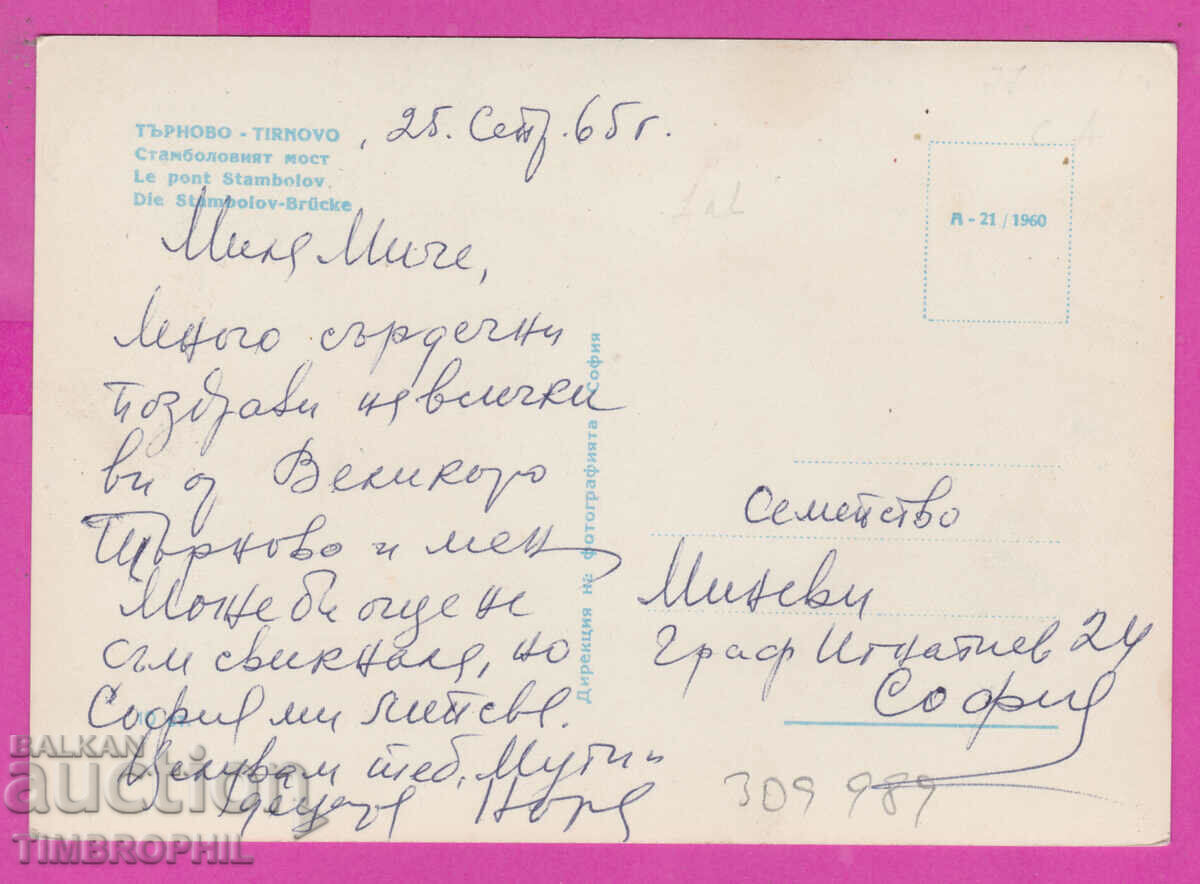 ТЪРНОВО - TIRNOVO
Стамболовият мост
Le pont Stambolov
Die Stambolov-Brücke
, 25. Септ. 65 г.
Мила Миче,
Много сърдечни
поздрави на всички
ви от Великото
Търново и мен
Може би още не
съм свикнала, но
София ми липсва.
Целувам теб, Мути и
децата Нора
Дирекция на фотографията София
А - 21 / 1960
Семейство
Миневи
Граф Игнатиев 24
София
309 989
BALKAN
auction
TIMBROPHIL